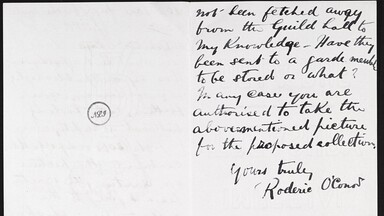 not been fetched away
from the Guild hall to
My Knowledge - Have they
been sent to a garde meuble
to be stored or what?
In any case you are
authorised to take the
abovementioned picture
for the proposed collection
Yours truly
Roderic O'Conor